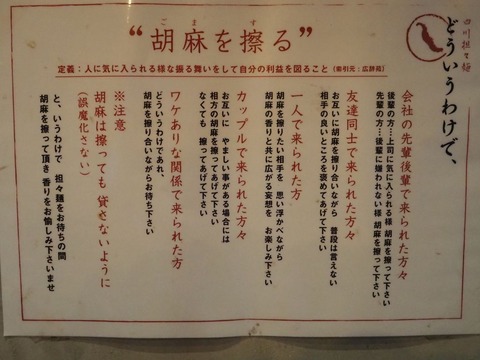 四川担々麺
どういうわけで、
ごま す
“胡麻を擦る”
定義：人に気に入られる様な振る舞いをして自分の利益を図ること（索引元：広辞苑）
会社の先輩後輩で来られた方々
後輩の方…上司に気に入られる様 胡麻を擦って下さい
先輩の方…後輩に嫌われない様 胡麻を擦って下さい
友達同士で来られた方々
お互いに胡麻を擦り合いながら 普段は言えない
相手の良いところを褒めてあげて下さい
一人で来られた方
胡麻を擦りたい相手を 思い浮かべながら
胡麻の香りと共に広がる妄想を お楽しみ下さい
カップルで来られた方々
お互いに やましい事がある場合には
相方の胡麻を擦ってあげて下さい
なくても 擦ってあげて下さい
ワケありな関係で来られた方
どういうわけであれ、
胡麻を擦り合いながらお待ち下さい
※注意
胡麻は擦っても 貸さないように
（誤魔化さない）
と、いうわけで 担々麺をお待ちの間
胡麻を擦って頂き 香りをお愉しみ下さいませ